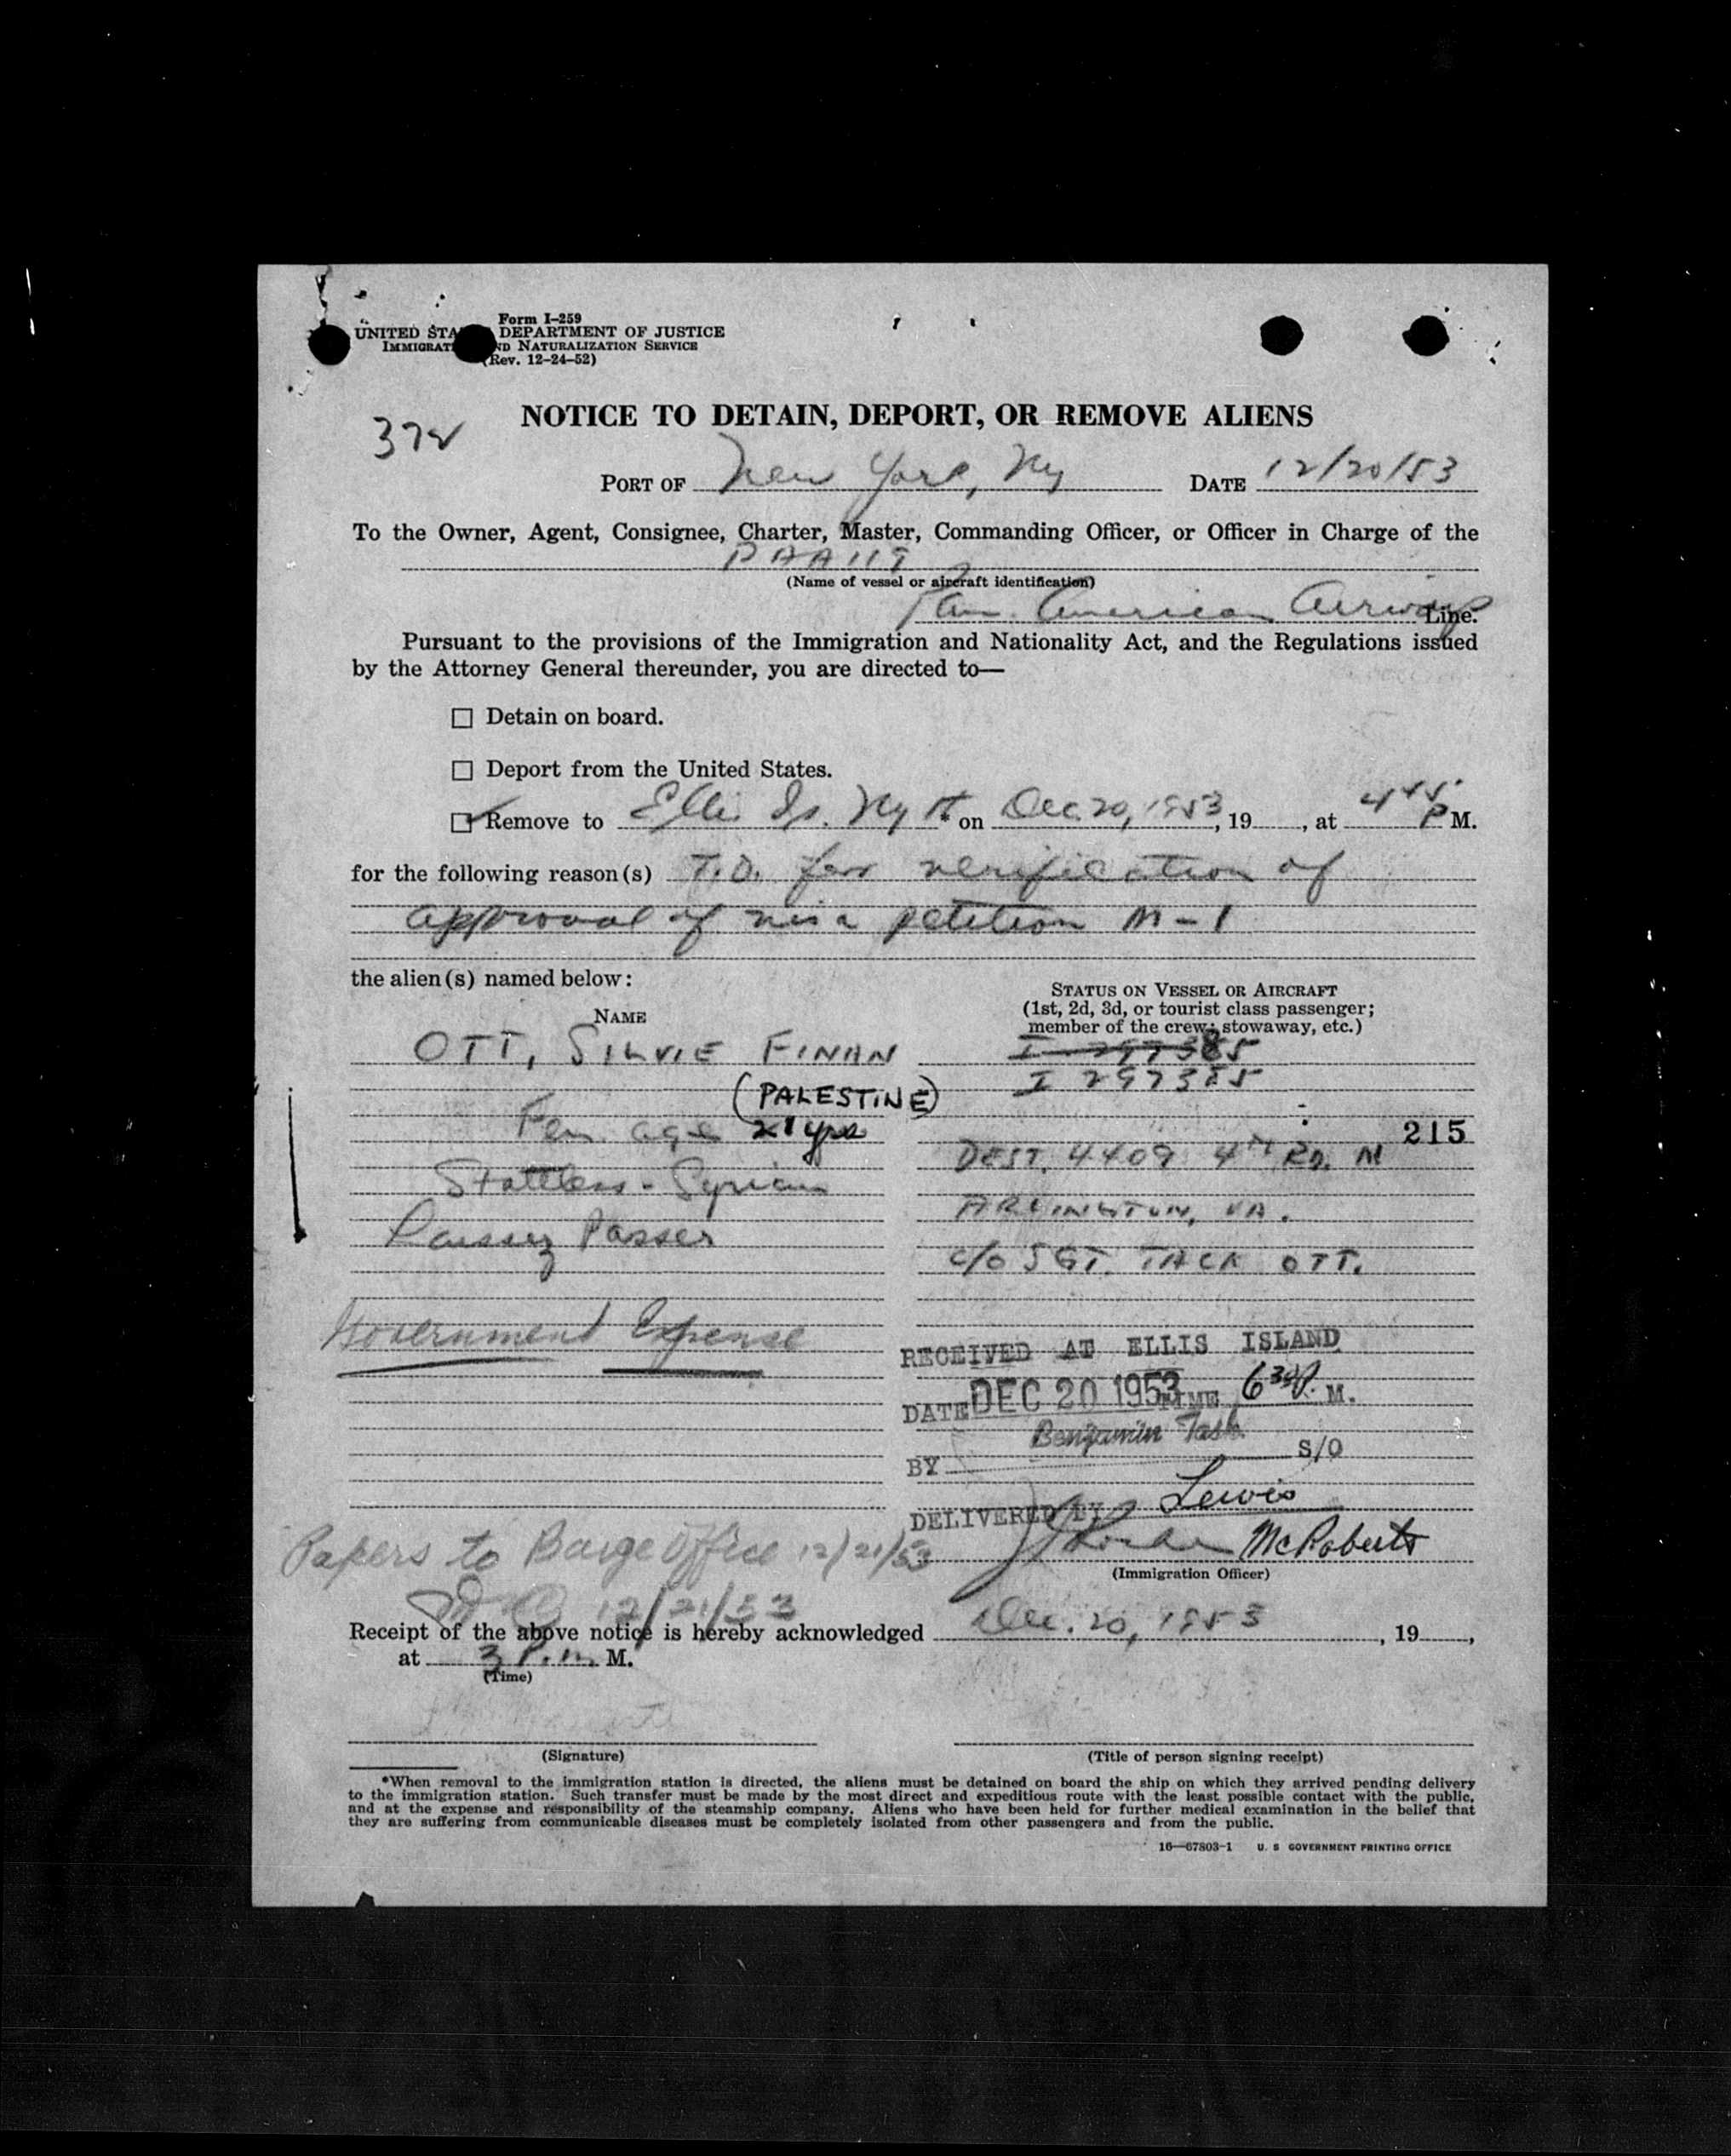 Form I-259
UNITED STA DEPARTMENT OF JUSTICE
IMMIGRAT ND NATURALIZATION SERVICE
(Rev. 12-24-52)
NOTICE TO DETAIN, DEPORT, OR REMOVE ALIENS
372
PORT OF New York, Ny DATE 12/20/53
To the Owner, Agent, Consignee, Charter, Master, Commanding Officer, or Officer in Charge of the
(Name of vessel or aircraft identification)
Pan. American Airways Line.
Pursuant to the provisions of the Immigration and Nationality Act, and the Regulations issued
by the Attorney General thereunder, you are directed to—
☐ Detain on board.
☐ Deport from the United States.
☑ Remove to Ellis Is. Ny * on Dec. 20, 1953, 19, at 4 45 P M.
for the following reason(s) T.D. for verification of
approval of visa petition M-1
the alien(s) named below:
NAME
STATUS ON VESSEL OR AIRCRAFT
(1st, 2d, 3d, or tourist class passenger;
member of the crew; stowaway, etc.)
OTT, SILVIE FINAN
I 297385
I 297385
(PALESTINE)
Fem. age 21 yrs
215
DEST. 4409 4th RD. N
Stateless - Syrian
ARLINGTON, VA.
Laissez Passer
c/o SGT. JACK OTT.
Government Expense
RECEIVED AT ELLIS ISLAND
DATE DEC 20 1953 TIME 6 30 P. M.
Benjamin Tash
BY S/O
DELIVERED BY Lewis
McRoberts
Papers to Barge Office 12/21/53
(Immigration Officer)
12/21/53
Receipt of the above notice is hereby acknowledged Dec. 20, 1953, 19,
at 3 P.m. M.
(Time)
(Signature)
(Title of person signing receipt)
*When removal to the immigration station is directed, the aliens must be detained on board the ship on which they arrived pending delivery
to the immigration station. Such transfer must be made by the most direct and expeditious route with the least possible contact with the public,
and at the expense and responsibility of the steamship company. Aliens who have been held for further medical examination in the belief that
they are suffering from communicable diseases must be completely isolated from other passengers and from the public.
16—67803-1 U. S GOVERNMENT PRINTING OFFICE